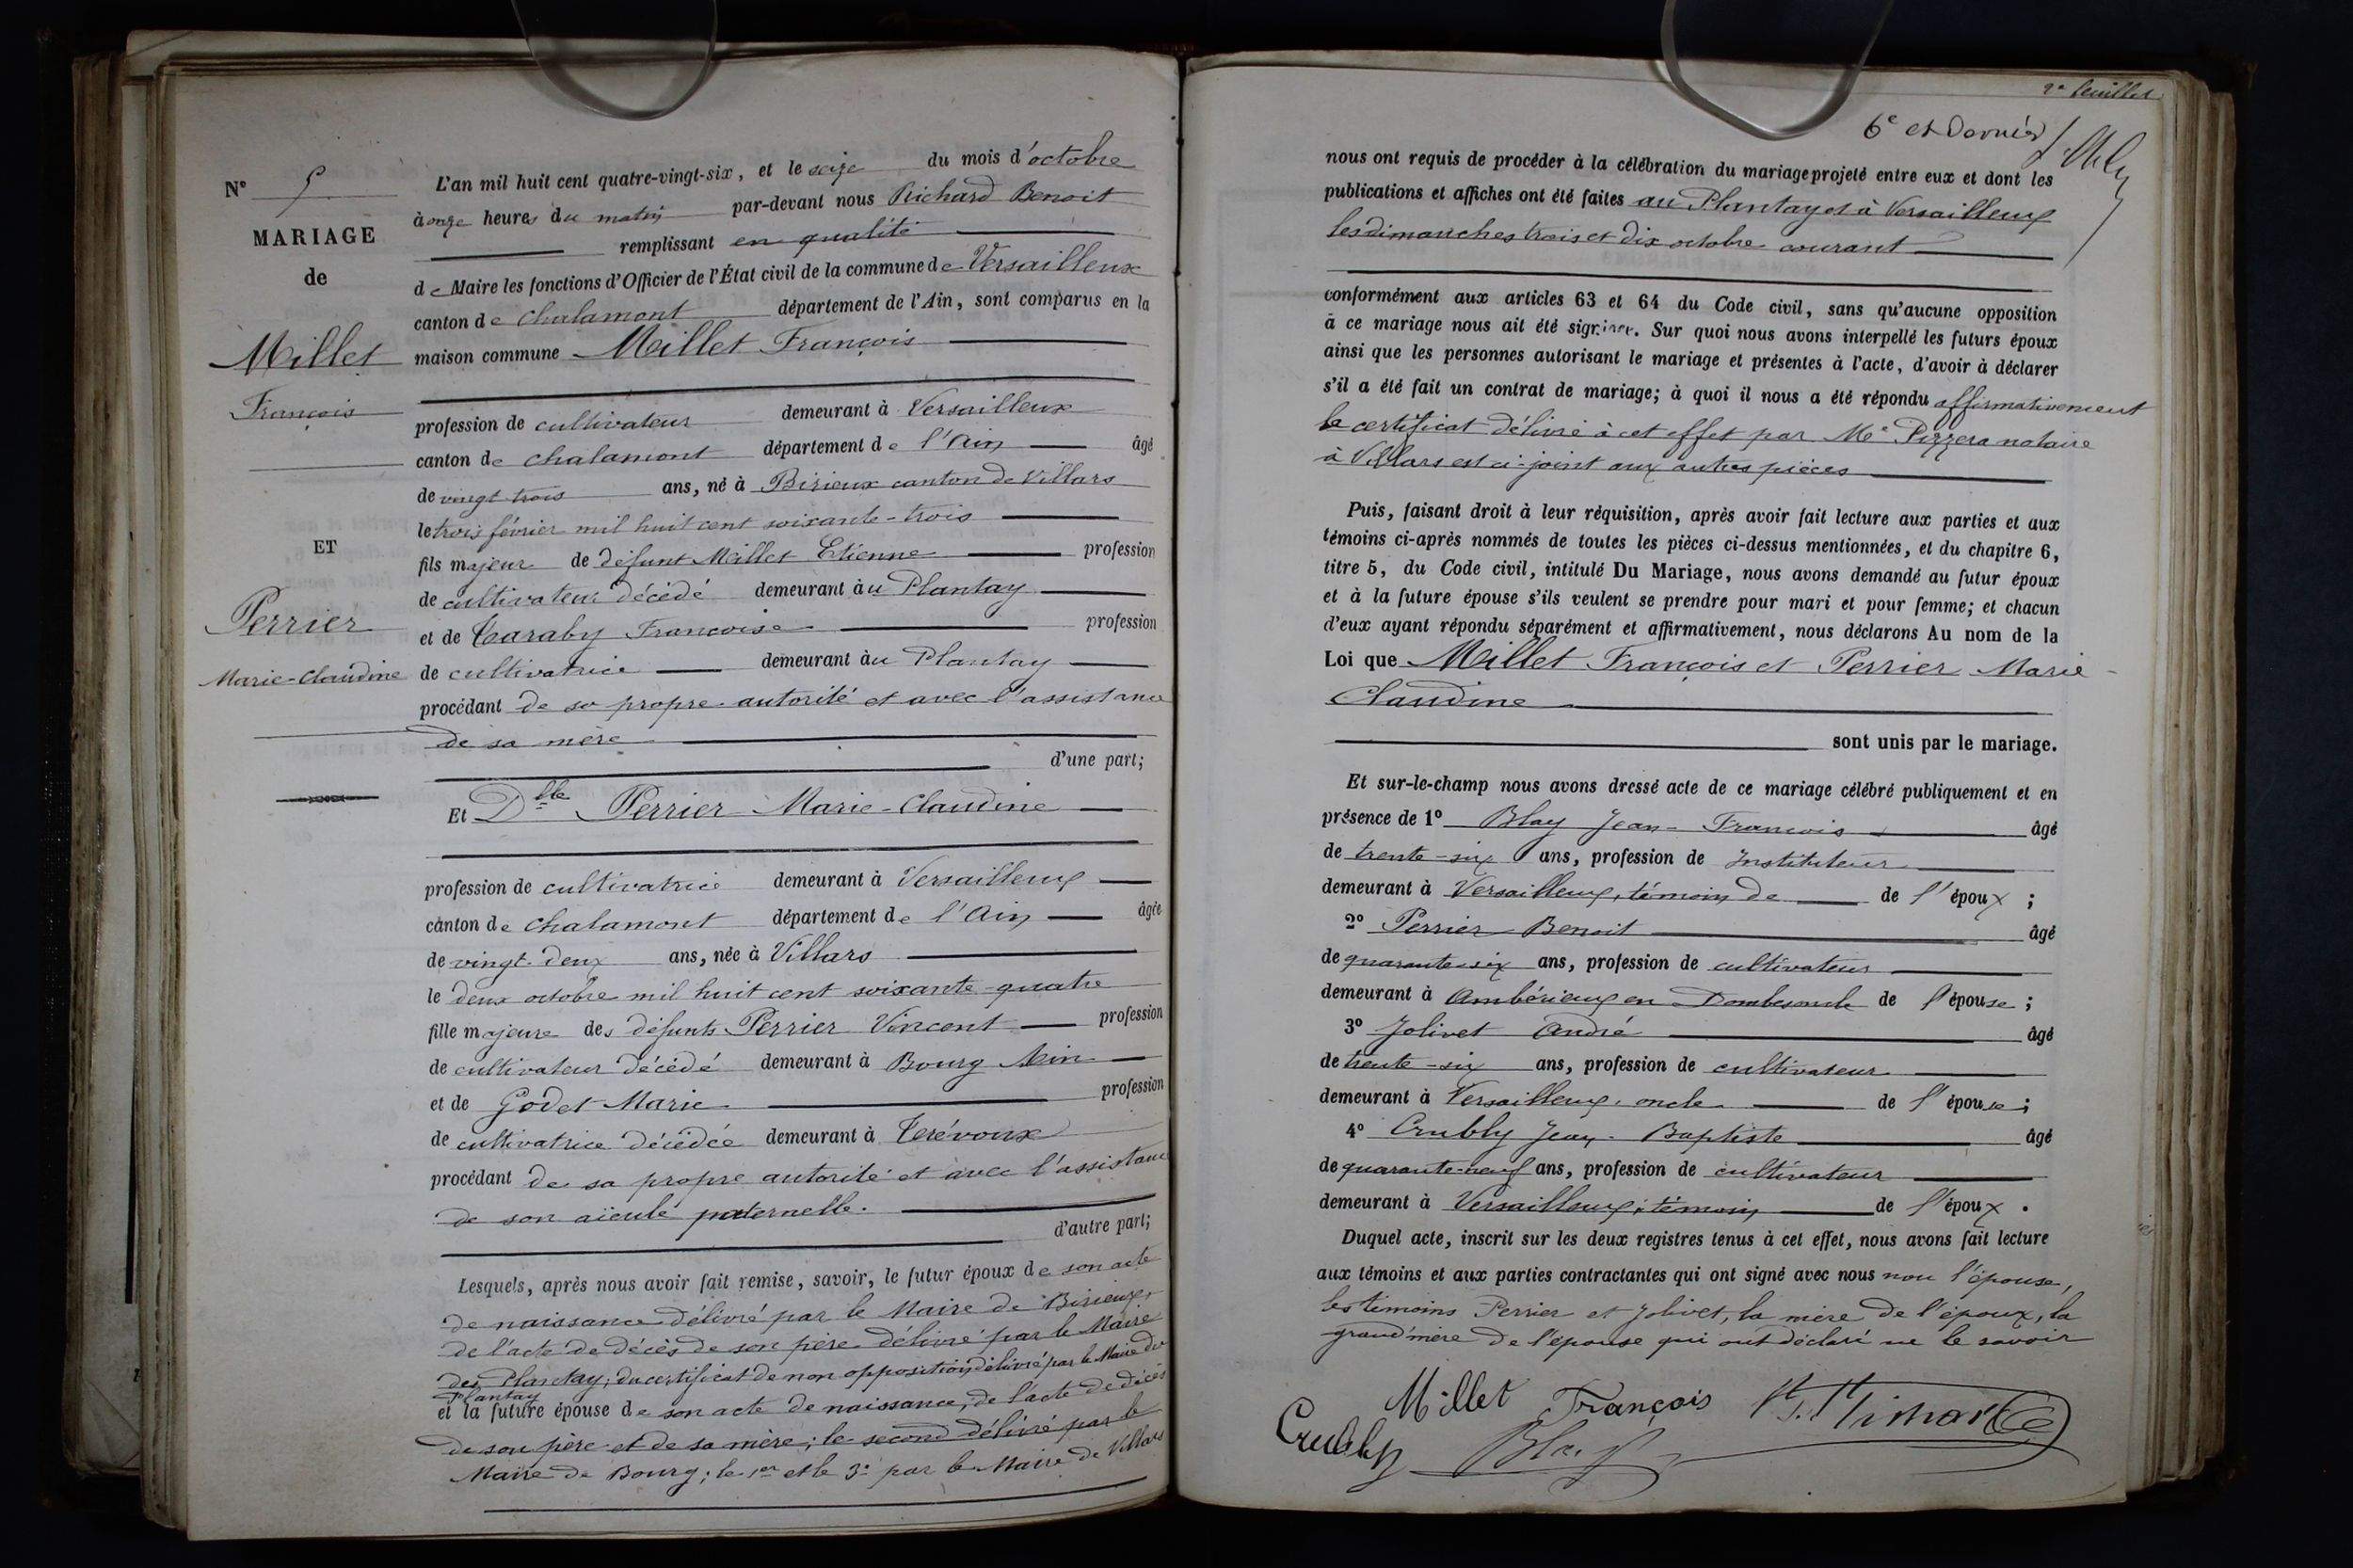 N° 5
MARIAGE
de
Millet
François
ET
Perrier
Marie-Claudine
L'an mil huit cent quatre-vingt-six, et le seize du mois d'octobre
à onze heures du matin par-devant nous Richard Benoit
remplissant en qualité
de Maire les fonctions d'Officier de l'État civil de la commune de Versailleux
canton de Chalamont département de l'Ain, sont comparus en la
maison commune Millet François
profession de cultivateur demeurant à Versailleux
canton de Chalamont département de l'Ain âgé
de vingt-trois ans, né à Birieux canton de Villars
le trois février mil huit cent soixante-trois
fils majeur de défunt Millet Etienne profession
de cultivateur décédé demeurant àu Plantay
et de Caraby Françoise profession
de cultivatrice demeurant àu Plantay
procédant de sa propre autorité et avec l'assistance
de sa mère
d'une part;
Et Dlle Perrier Marie-Claudine
profession de cultivatrice demeurant à Versailleux
canton de Chalamont département de l'Ain âgée
de vingt-deux ans, née à Villars
le deux octobre mil huit cent soixante-quatre
fille majeure des défunts Perrier Vincent profession
de cultivateur décédé demeurant à Bourg Ain
et de Godet Marie profession
de cultivatrice décédée demeurant à Terévoux
procédant de sa propre autorité et avec l'assistance
de son aïeule paternelle.
d'autre part;
Lesquels, après nous avoir fait remise, savoir, le futur époux de son acte
de naissance délivré par le Maire de Birieux,
de l'acte de décès de son père délivré par le Maire
des Plantay; du certificat de non opposition délivré par le Maire du
Plantay
et la future épouse de son acte de naissance, de l'acte de décès
de son père et de sa mère; le second délivré par le
Maire de Bourg; le 1er et le 3e par le Maire de Villars
2e feuillet
6e et Dernier
nous ont requis de procéder à la célébration du mariage projeté entre eux et dont les
publications et affiches ont été faites au Plantay et à Versailleux
les dimanches trois et dix octobre courant
conformément aux articles 63 et 64 du Code civil, sans qu'aucune opposition
à ce mariage nous ait été signifiée. Sur quoi nous avons interpellé les futurs époux
ainsi que les personnes autorisant le mariage et présentes à l'acte, d'avoir à déclarer
s'il a été fait un contrat de mariage; à quoi il nous a été répondu affirmativement
le certificat délivré à cet effet par Me Pizzera notaire
à Villars est ci-joint aux autres pièces
Puis, faisant droit à leur réquisition, après avoir fait lecture aux parties et aux
témoins ci-après nommés de toutes les pièces ci-dessus mentionnées, et du chapitre 6,
titre 5, du Code civil, intitulé Du Mariage, nous avons demandé au futur époux
et à la future épouse s'ils veulent se prendre pour mari et pour femme; et chacun
d'eux ayant répondu séparément et affirmativement, nous déclarons Au nom de la
Loi que Millet François et Perrier Marie-
Claudine
sont unis par le mariage.
Et sur-le-champ nous avons dressé acte de ce mariage célébré publiquement et en
présence de 1° Blay Jean-François âgé
de trente-six ans, profession de Instituteur
demeurant à Versailleux, témoin de de l'époux;
2° Perrier Benoit âgé
de quarante-six ans, profession de cultivateur
demeurant à Ambérieux en Dombes oncle de l'épouse;
3° Jolivet André âgé
de trente-six ans, profession de cultivateur
demeurant à Versailleux, oncle de l'épouse;
4° Crubly Jean-Baptiste âgé
de quarante-neuf ans, profession de cultivateur
demeurant à Versailleux, témoin de l'époux.
Duquel acte, inscrit sur les deux registres tenus à cet effet, nous avons fait lecture
aux témoins et aux parties contractantes qui ont signé avec nous non l'épouse,
les témoins Perrier et Jolivet, la mère de l'époux, la
grand'mère de l'épouse qui ont déclaré ne le savoir
Millet François
Crubly Blay